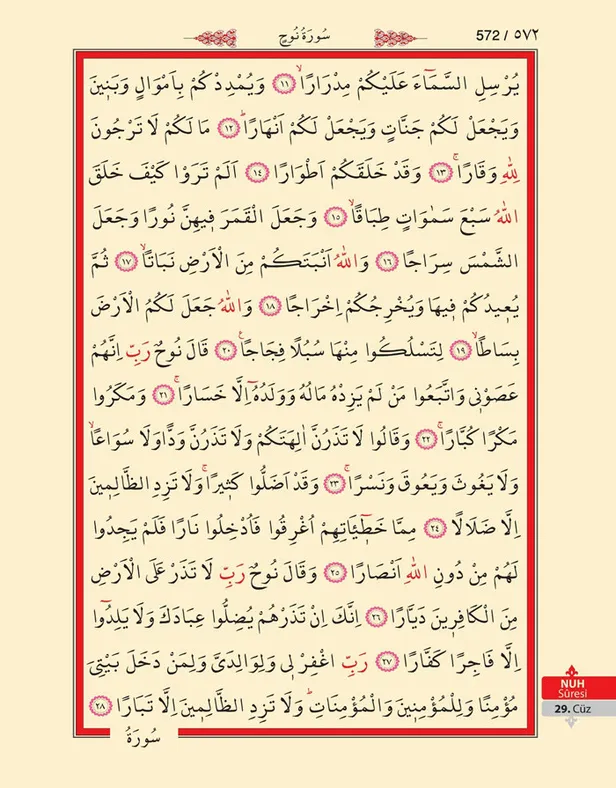 سُورَةُ نُوحٍ
572 / ٥٧٢
يُرْسِلِ السَّمَٓاءَ عَلَيْكُمْ مِدْرَارًاۙ ﴿١١﴾ وَيُمْدِدْكُمْ بِاَمْوَالٍ وَبَن۪ينَ
وَيَجْعَلْ لَكُمْ جَنَّاتٍ وَيَجْعَلْ لَكُمْ اَنْهَارًاۜ ﴿١٢﴾ مَا لَكُمْ لَا تَرْجُونَ
لِلّٰهِ وَقَارًاۚ ﴿١٣﴾ وَقَدْ خَلَقَكُمْ اَطْوَارًا ﴿١٤﴾ اَلَمْ تَرَوْا كَيْفَ خَلَقَ
اللّٰهُ سَبْعَ سَمٰوَاتٍ طِبَاقًاۙ ﴿١٥﴾ وَجَعَلَ الْقَمَرَ ف۪يهِنَّ نُورًا وَجَعَلَ
الشَّمْسَ سِرَاجًا ﴿١٦﴾ وَاللّٰهُ اَنْبَتَكُمْ مِنَ الْاَرْضِ نَبَاتًاۙ ﴿١٧﴾ ثُمَّ
يُع۪يدُكُمْ ف۪يهَا وَيُخْرِجُكُمْ اِخْرَاجًا ﴿١٨﴾ وَاللّٰهُ جَعَلَ لَكُمُ الْاَرْضَ
بِسَاطًاۙ ﴿١٩﴾ لِتَسْلُكُوا مِنْهَا سُبُلًا فِجَاجًا۟ ﴿٢٠﴾ قَالَ نُوحٌ رَبِّ اِنَّهُمْ
عَصَوْن۪ي وَاتَّبَعُوا مَنْ لَمْ يَزِدْهُ مَالُهُ وَوَلَدُهُٓ اِلَّا خَسَارًاۚ ﴿٢١﴾ وَمَكَرُوا
مَكْرًا كُبَّارًاۚ ﴿٢٢﴾ وَقَالُوا لَا تَذَرُنَّ اٰلِهَتَكُمْ وَلَا تَذَرُنَّ وَدًّا وَلَا سُوَاعًاۙ
وَلَا يَغُوثَ وَيَعُوقَ وَنَسْرًاۚ ﴿٢٣﴾ وَقَدْ اَضَلُّوا كَث۪يرًاۚ وَلَا تَزِدِ الظَّالِم۪ينَ
اِلَّا ضَلَالًا ﴿٢٤﴾ مِمَّا خَط۪ٓيـَٔاتِهِمْ اُغْرِقُوا فَاُدْخِلُوا نَارًا فَلَمْ يَجِدُوا
لَهُمْ مِنْ دُونِ اللّٰهِ اَنْصَارًا ﴿٢٥﴾ وَقَالَ نُوحٌ رَبِّ لَا تَذَرْ عَلَى الْاَرْضِ
مِنَ الْكَافِر۪ينَ دَيَّارًا ﴿٢٦﴾ اِنَّكَ اِنْ تَذَرْهُمْ يُضِلُّوا عِبَادَكَ وَلَا يَلِدُٓوا
اِلَّا فَاجِرًا كَفَّارًا ﴿٢٧﴾ رَبِّ اغْفِرْ ل۪ي وَلِوَالِدَيَّ وَلِمَنْ دَخَلَ بَيْتِيَ
مُؤْمِنًا وَلِلْمُؤْمِن۪ينَ وَالْمُؤْمِنَاتِۜ وَلَا تَزِدِ الظَّالِم۪ينَ اِلَّا تَبَارًا ﴿٢٨﴾
سُورَةُ
NUH
Sûresi
29. Cüz